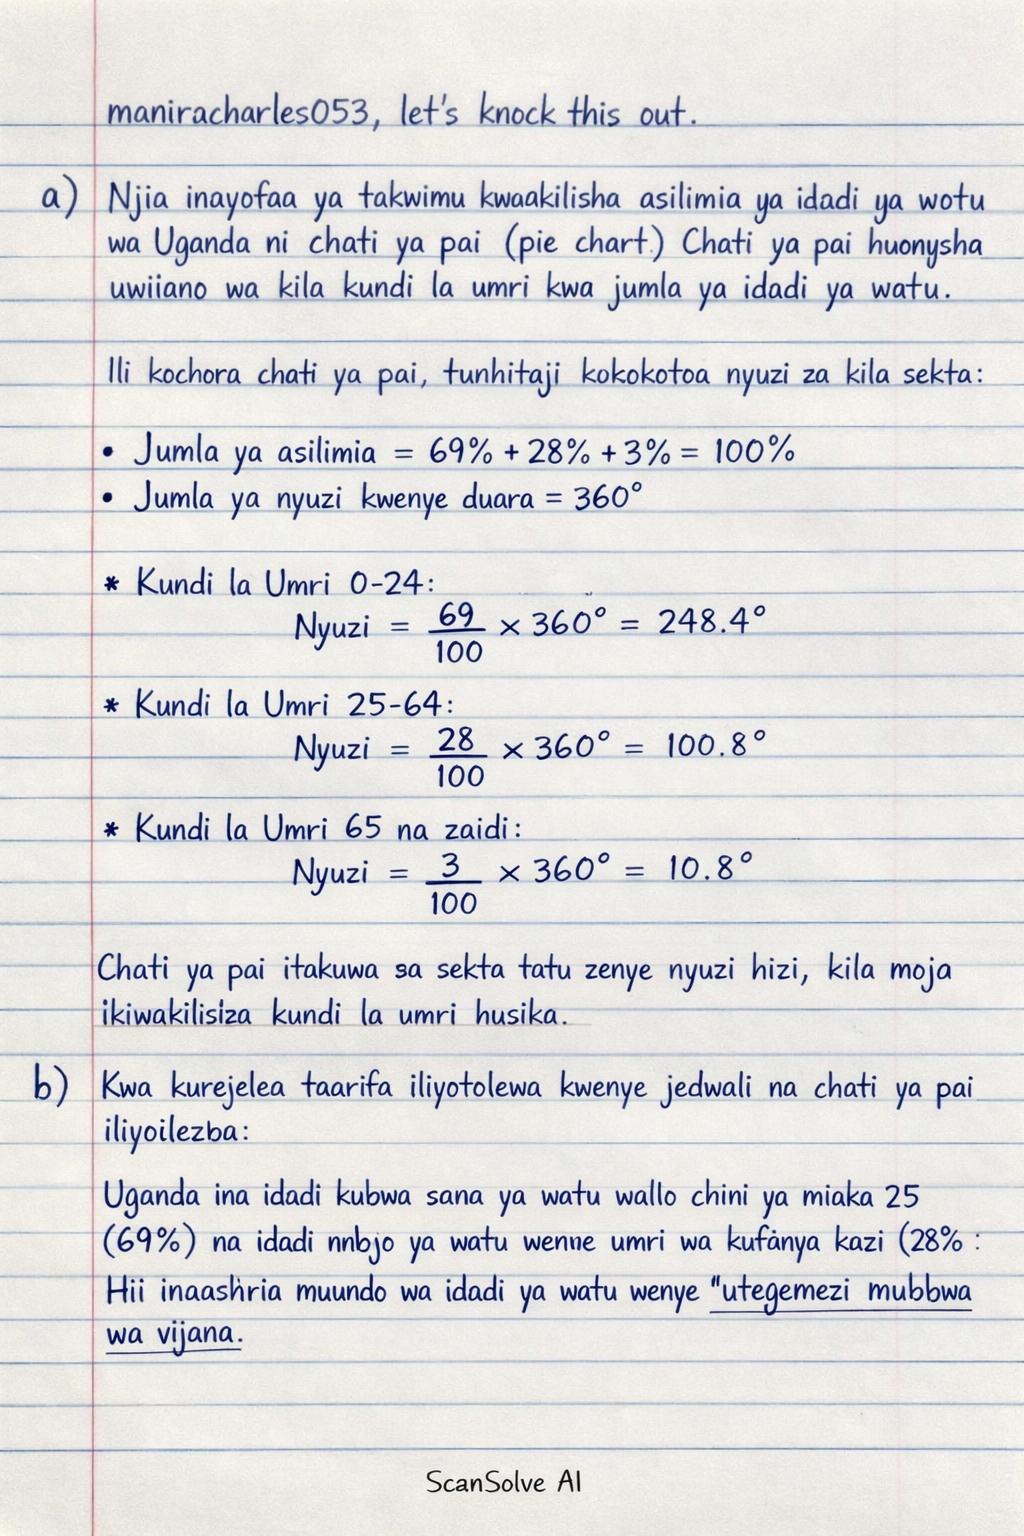 maniracharles053, let's knock this out.
a) Njia inayofaa ya takwimu kwaakilisha asilimia ya idadi ya wotu
wa Uganda ni chati ya pai (pie chart.) Chati ya pai huonysha
uwiiano wa kila kundi la umri kwa jumla ya idadi ya watu.
Ili kochora chati ya pai, tunhitaji kokokotoa nyuzi za kila sekta:
• Jumla ya asilimia = 69% + 28% + 3% = 100%
• Jumla ya nyuzi kwenye duara = 360°
* Kundi la Umri 0-24:
Nyuzi = 69/100 × 360° = 248.4°
* Kundi la Umri 25-64:
Nyuzi = 28/100 × 360° = 100.8°
* Kundi la Umri 65 na zaidi:
Nyuzi = 3/100 × 360° = 10.8°
Chati ya pai itakuwa sa sekta tatu zenye nyuzi hizi, kila moja
ikiwakilisiza kundi la umri husika.
b) Kwa kurejelea taarifa iliyotolewa kwenye jedwali na chati ya pai
iliyoilezba:
Uganda ina idadi kubwa sana ya watu wallo chini ya miaka 25
(69%) na idadi nnbjo ya watu wenne umri wa kufanya kazi (28% :
Hii inaashria muundo wa idadi ya watu wenye "utegemezi mubbwa
wa vijana.
ScanSolve AI